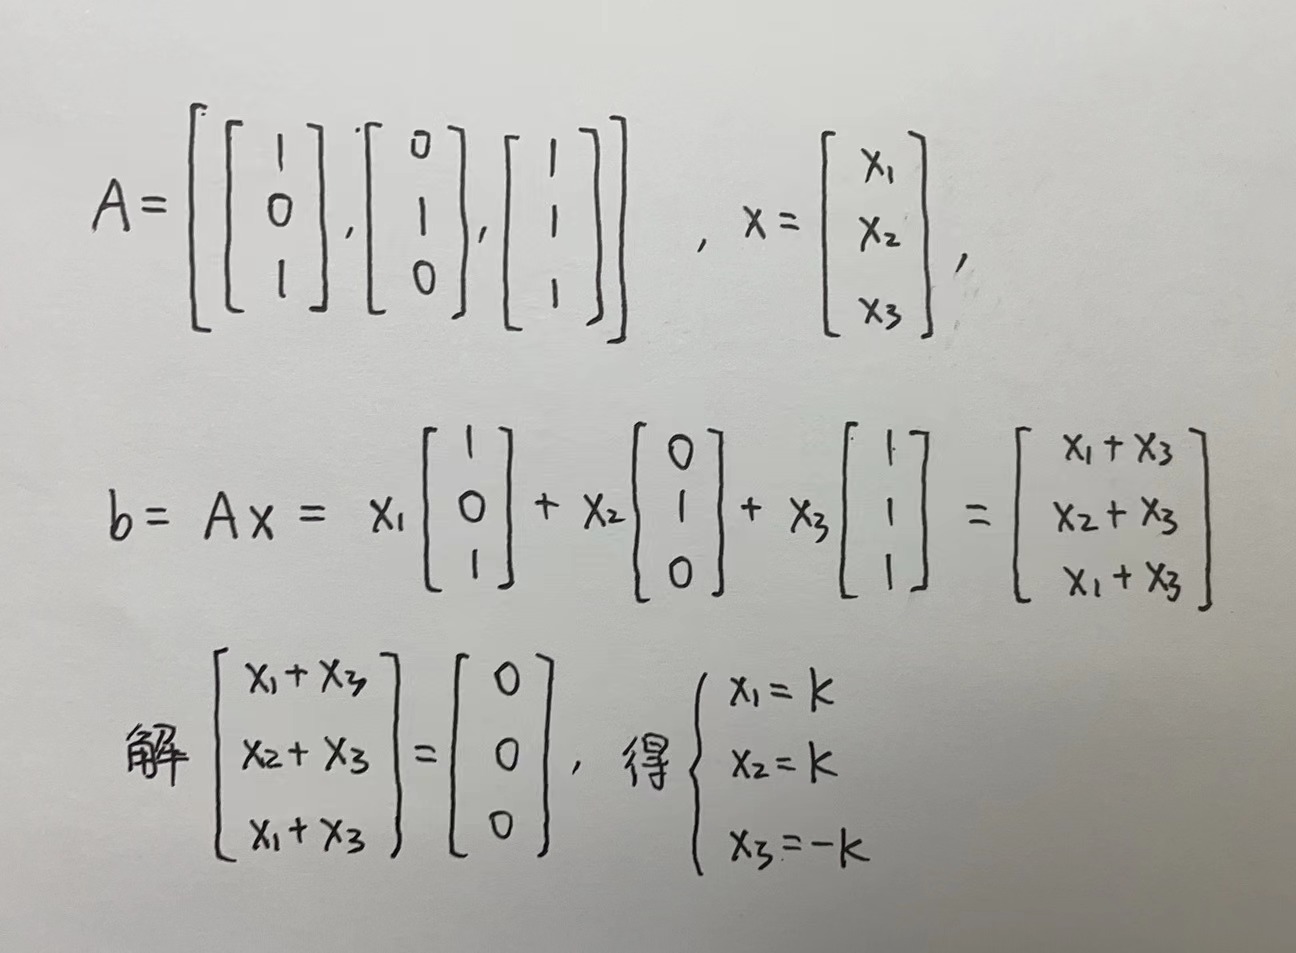 A = [[1 0 1], [0 1 0], [1 1 1]] , x = [x₁ x₂ x₃],
b = Ax = x₁[1 0 1] + x₂[0 1 0] + x₃[1 1 1] = [x₁+x₃ x₂+x₃ x₁+x₃]
解 [x₁+x₃ x₂+x₃ x₁+x₃] = [0 0 0], 得 { x₁=k x₂=k x₃=-k